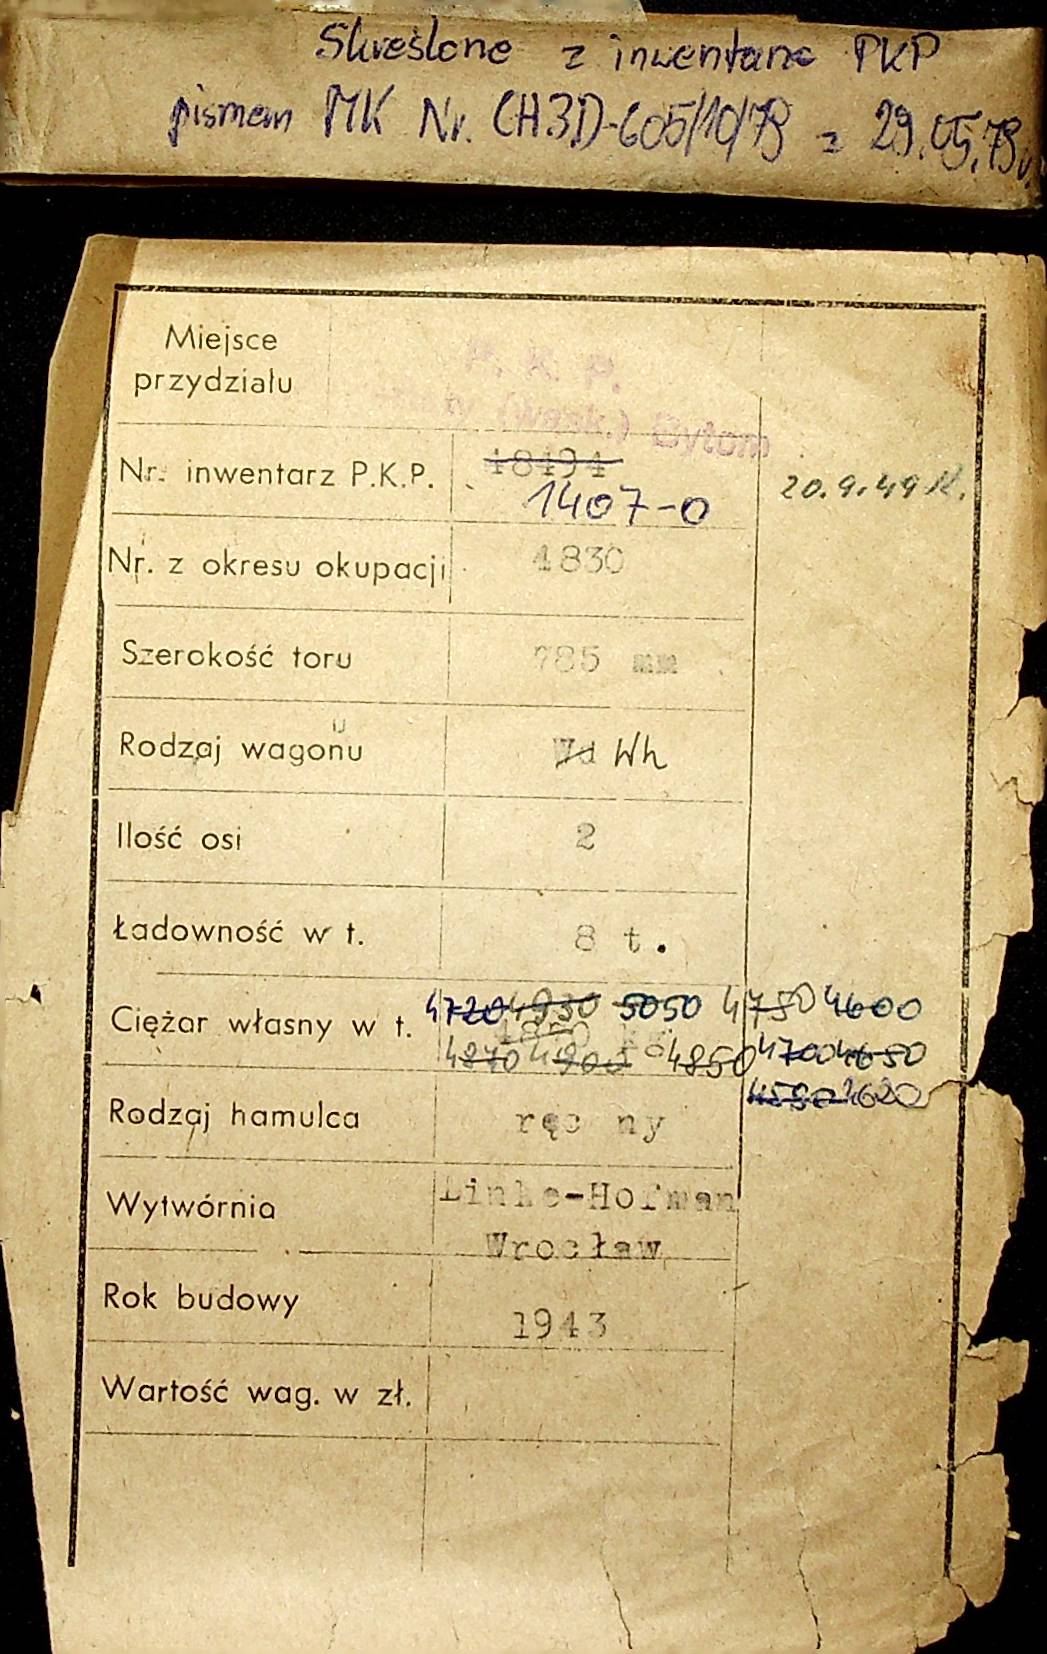 Skreślone z inwentarza PKP
pismem MK Nr. CH.3D-605/10/79 z 29.05.79r.
Miejsce
przydziału
P. K. P.
(wąsk.) Bytom
Nr. inwentarz P.K.P. 48494
1407-0
20.9.49 R.
Nr. z okresu okupacji 4830
Szerokość toru 785 mm
Rodzaj wagonu Wd Wh
Ilość osi 2
Ładowność w t. 8 t.
4720 4930 5050 4750 4600
Ciężar własny w t.
4870 4900 4850 4700 4650
4620
Rodzaj hamulca ręc ny
Wytwórnia Linke-Hofman
Wrocław
Rok budowy 1943
Wartość wag. w zł.